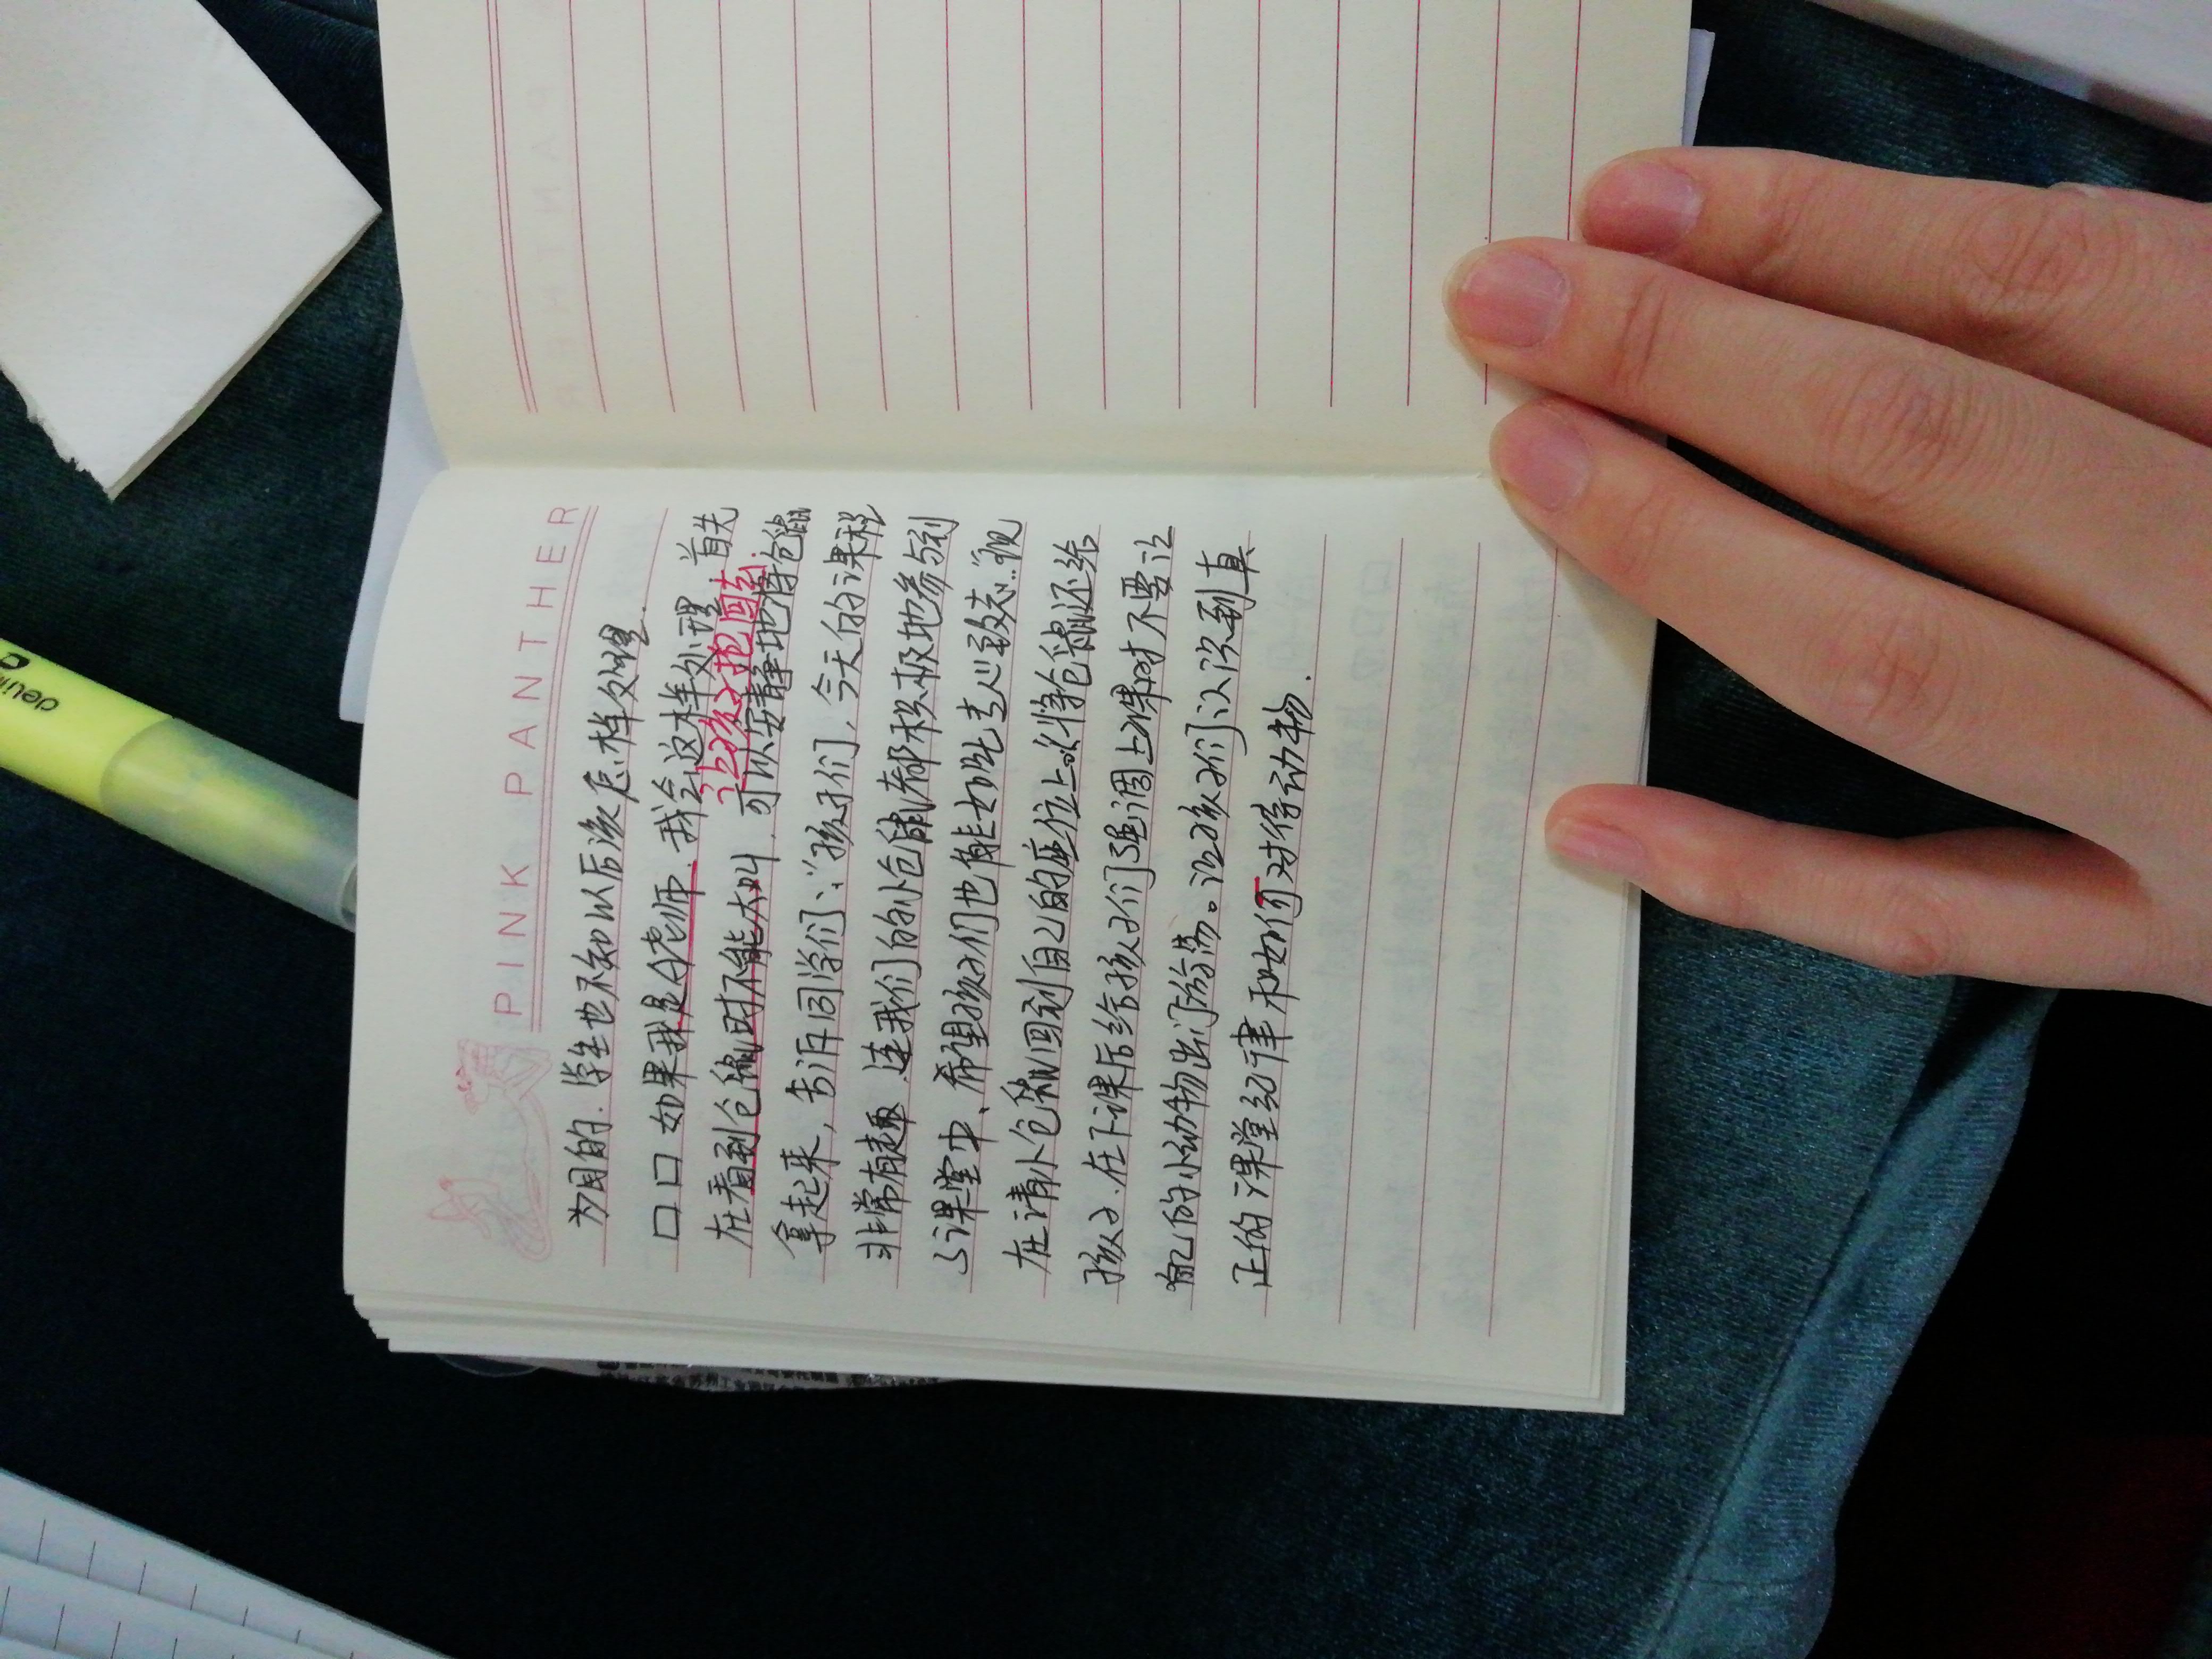 deli
PINK PANTHER
为目的.学生也不知以后该怎样处理.
口口如果我是A老师.我会这样处理.首先
让孩子抱回去.
在看到仓鼠时不能大叫.可以安静地将仓鼠
拿起来,告诉同学们:“孩子们,今天的课程
非常有趣.连我们的小仓鼠都积极地参与到
了课堂中、希望孩子们也能如此专心致志.”“现
在请小仓鼠回到自己的座位上。”将仓鼠还给
孩子.在下课后给孩子们强调上课时不要让
自己的小动物出门游荡。让孩子们认识到真
正的课堂纪律和如何对待动物.